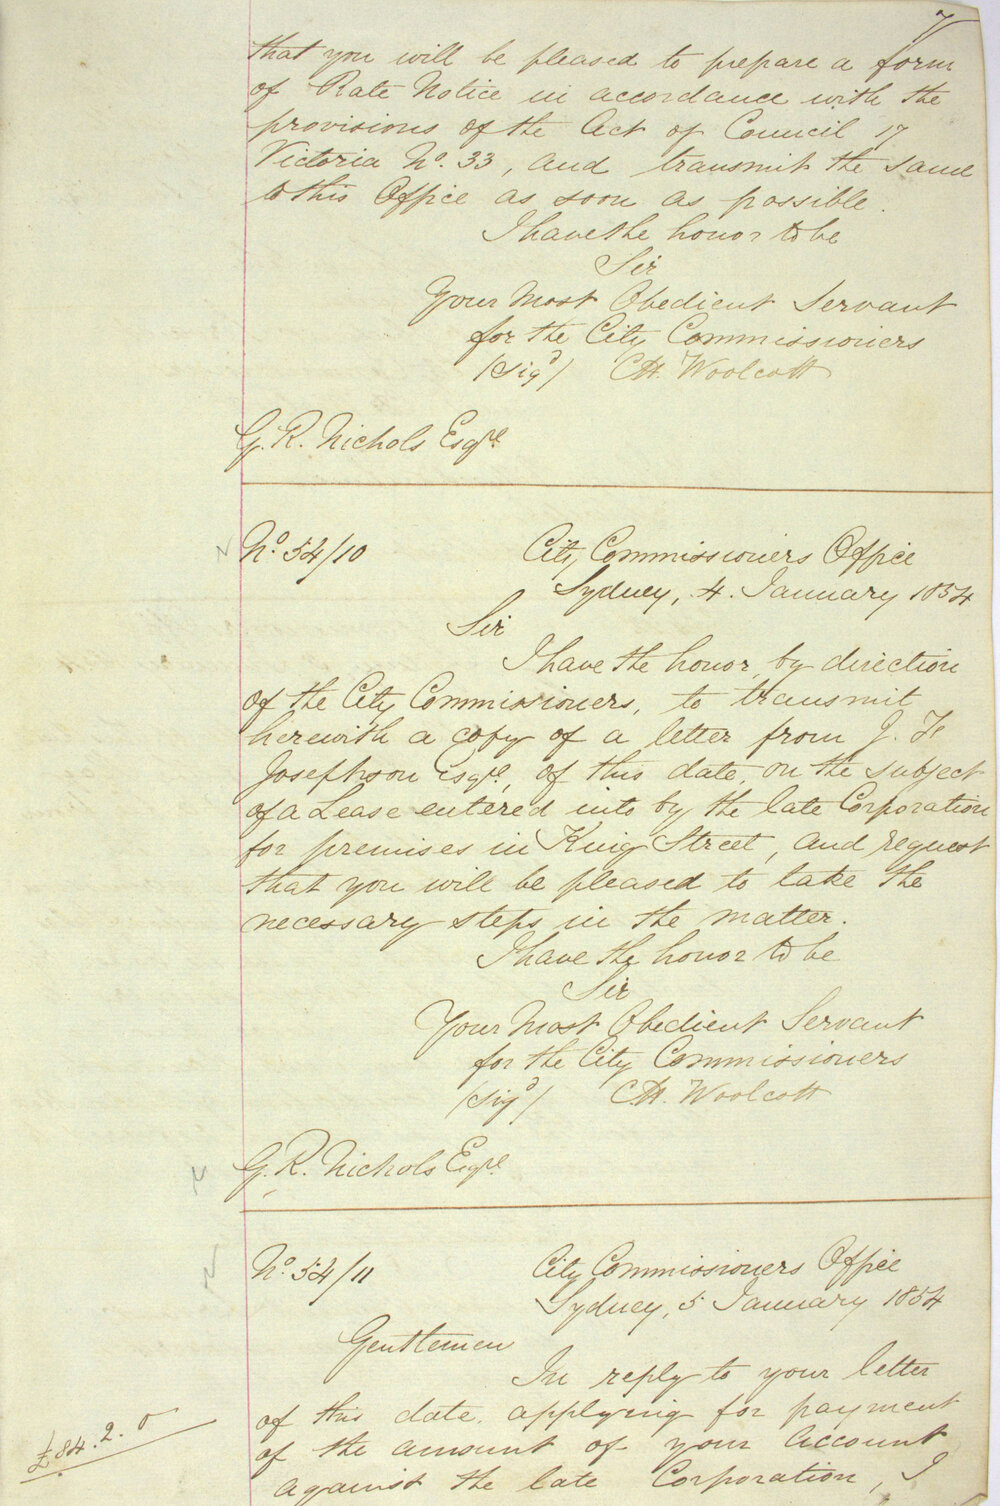 7
that you will be pleased to prepare a form
of Rate Notice in accordance with the
provisions of the Act of Council 17
Victoria No. 33, and transmit the same
to this Office as soon as possible.
I have the honor to be
Sir
Your Most Obedient Servant
for the City Commissioners
(Sigd) CH. Woolcott
G. R. Nichols Esqre.
No. 54/10 City Commissioners Office
Sydney, 4. January 1854
Sir
I have the honor, by direction
of the City Commissioners, to transmit
herewith a copy of a letter from J. F.
Josephson Esqre, of this date, on the subject
of a Lease entered into by the late Corporation
for premises in King Street, and request
that you will be pleased to take the
necessary steps in the matter.
I have the honor to be
Sir
Your Most Obedient Servant
for the City Commissioners
(Sigd) CH. Woolcott
G. R. Nichols Esqre.
No. 54/11 City Commissioners Office
Sydney, 5 January 1854
Gentlemen
In reply to your letter
of this date, applying for payment
of the amount of your Account
against the late Corporation, I
£84.2.0